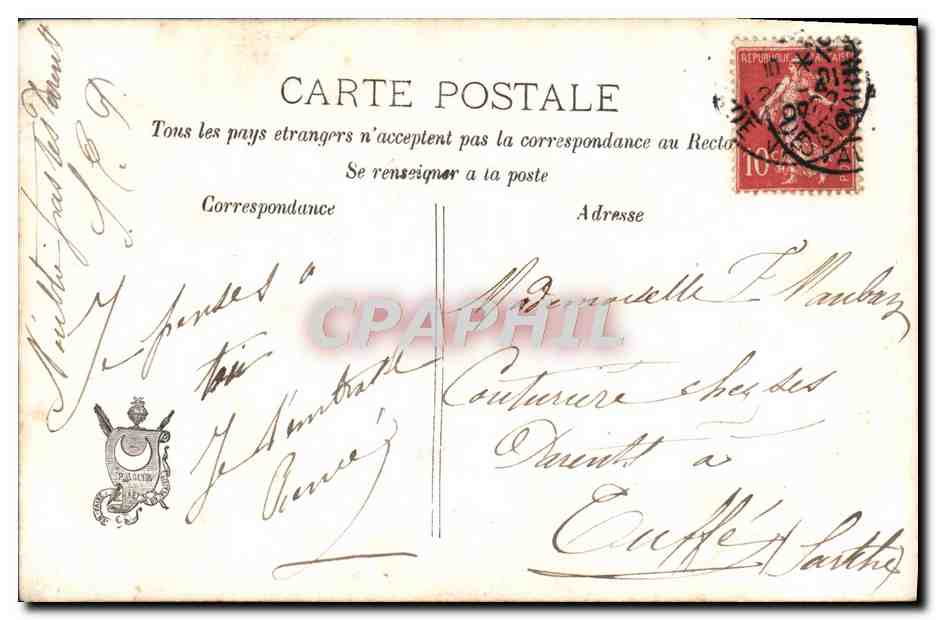 CARTE POSTALE
Tous les pays etrangers n'acceptent pas la correspondance au Recto
Se renseigner a la poste
Correspondance
Adresse
REPUBLIQUE FRANCAISE
10
POSTES
Je penses a
toi
Je t'embrasse
René
Mademoiselle F Maubay
Couturière chez ses
Parents à
Tuffé
Sarthe
N'oublie pas tes
CPAPHIL